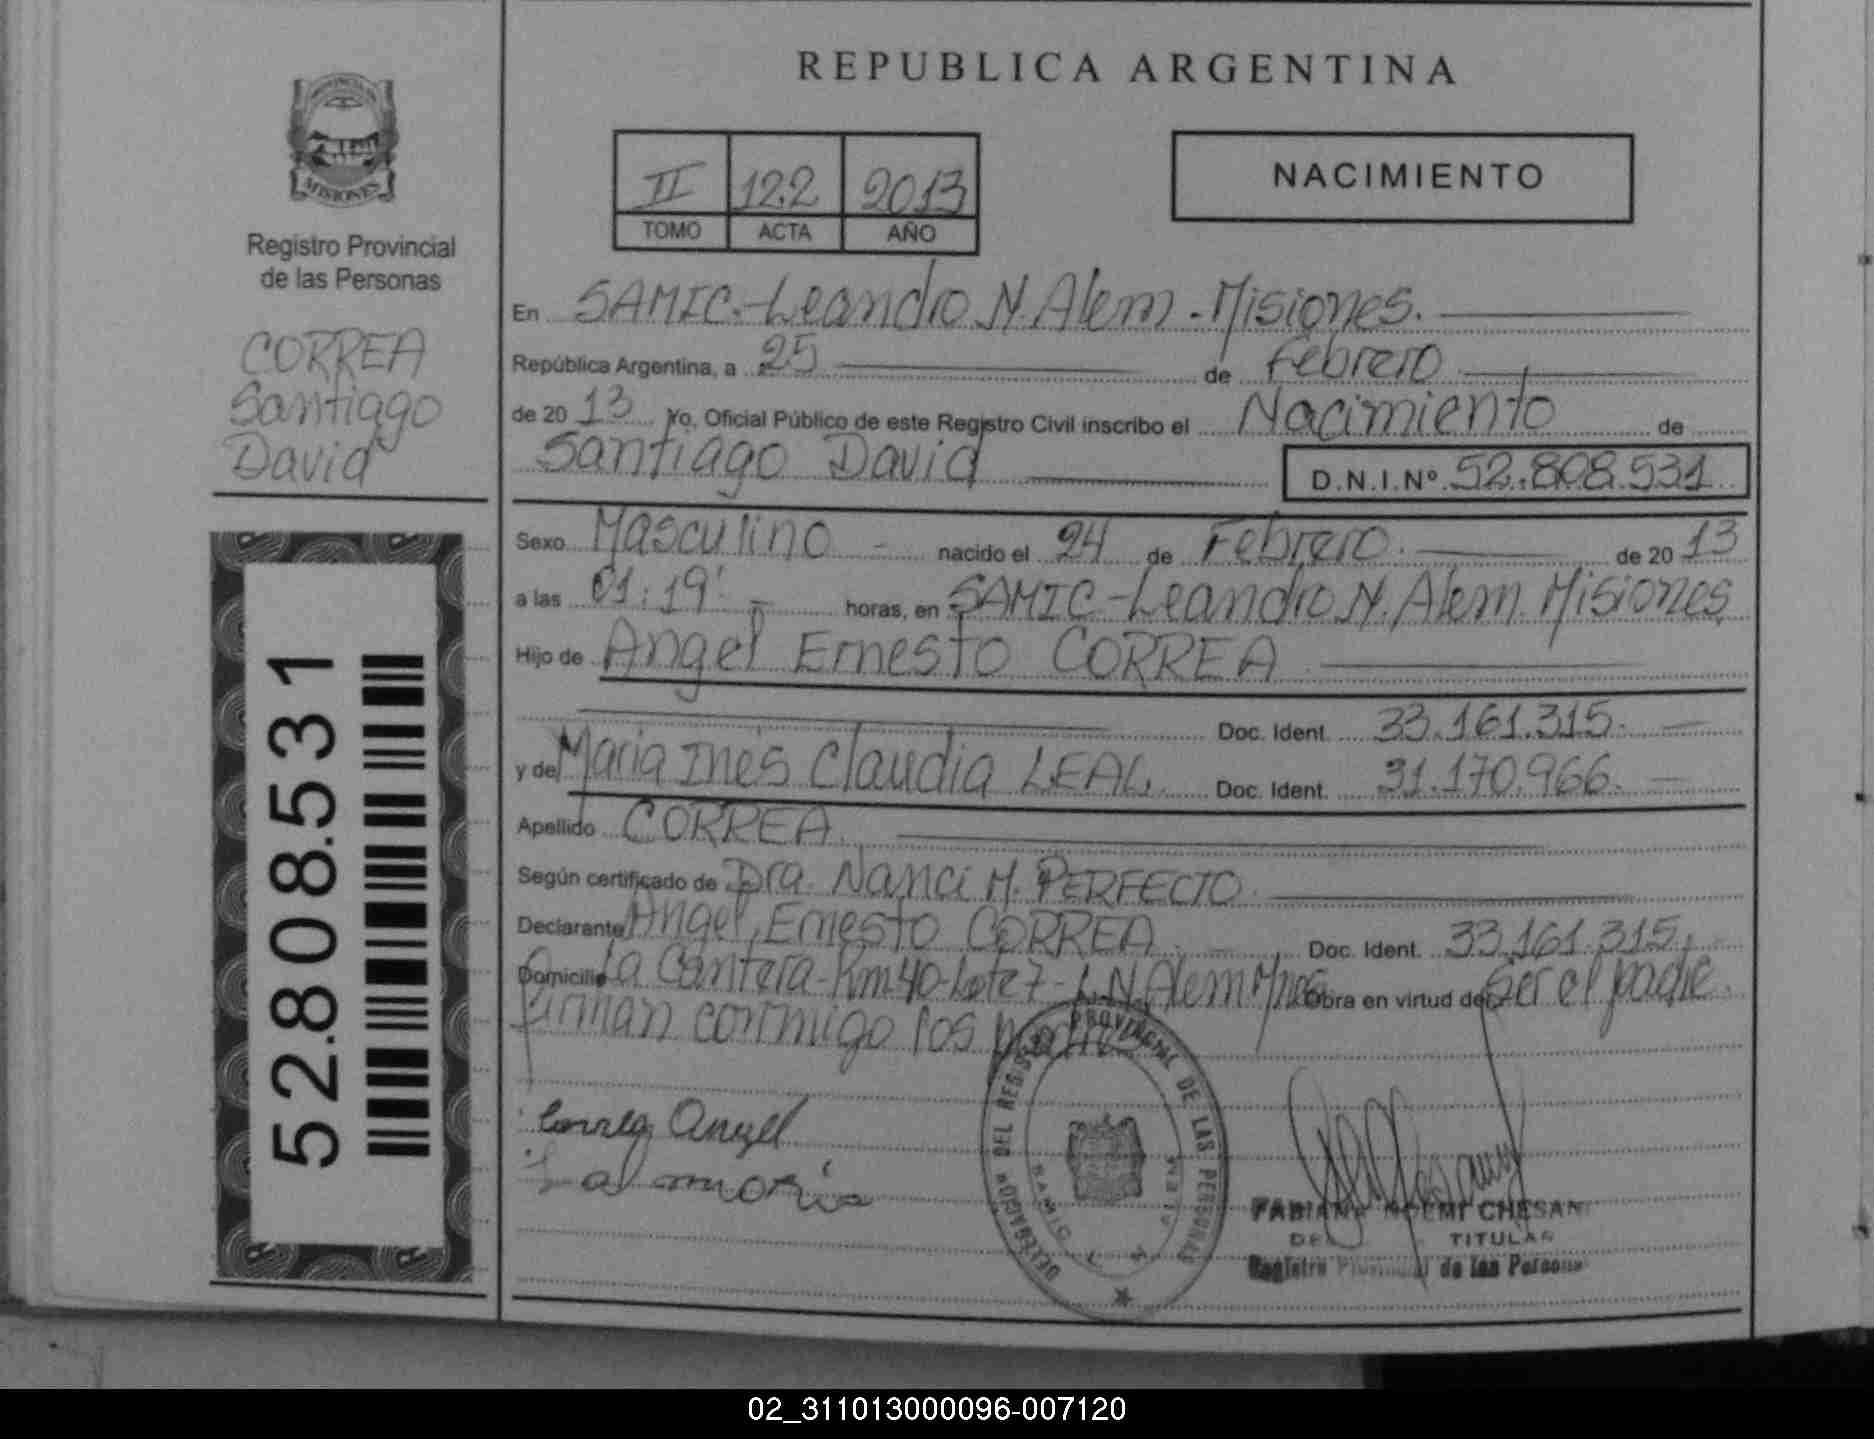 REPUBLICA ARGENTINA
PROVINCIA DE
MISIONES
Registro Provincial
de las Personas
CORREA
Santiago
David
52.808.531
II 122 2013
TOMO ACTA AÑO
NACIMIENTO
En SAMIC.-Leandro N. Alem.-Misiones.
República Argentina, a 25 de Febrero
de 2013 Yo, Oficial Público de este Registro Civil inscribo el Nacimiento de
Santiago David D.N.I.Nº 52.808.531
Sexo Masculino - nacido el 24 de Febrero. de 2013
a las 01:19' - horas, en SAMIC-Leandro N. Alem. Misiones
Hijo de Angel Ernesto CORREA
Doc. Ident. 33.161.315.-
y de Maria Inés Claudia LEAL. Doc. Ident. 31.170.966.-
Apellido CORREA.
Según certificado de Dra. Nanci M. PERFECTO.
Declarante Angel Ernesto CORREA.- Doc. Ident. 33.161.315.-
Domicilio La Cantera-Km40-Lote 7-L.N.Alem Mnes Obra en virtud de: Ser el padre.
firman conmigo los padres
Correa Angel
Leal maria
DELEGACION DEL REGISTRO PROVINCIAL DE LAS PERSONAS
SAMIC
FABIANA NOEMI CHESANI
TITULAR
Registro Provincial de las Personas
02_311013000096-007120